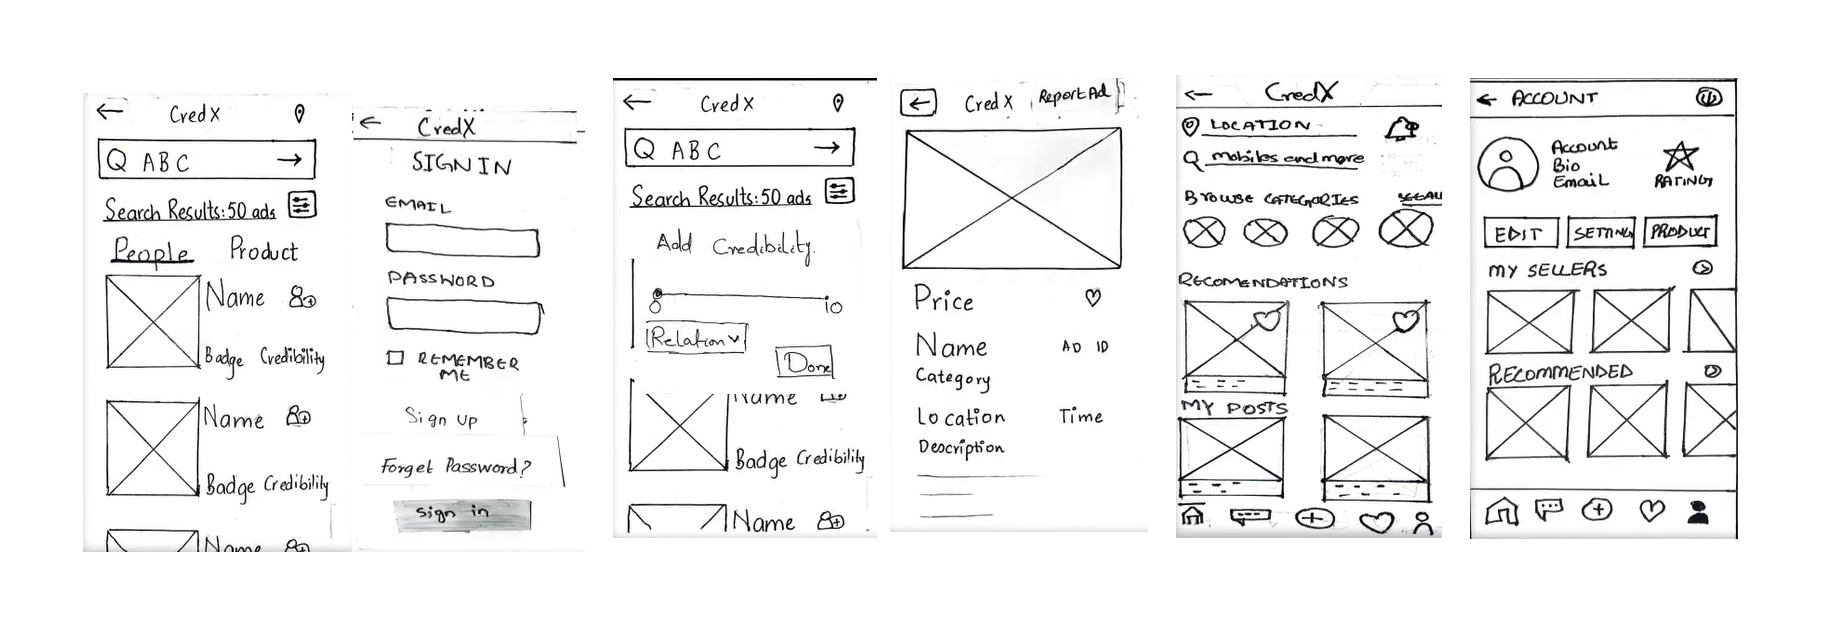 CredX
ABC
Search Results: 50 ads
People Product
Name
Badge Credibility
Name
Badge Credibility
Name
CredX
SIGN IN
EMAIL
PASSWORD
REMEMBER
ME
Sign up
Forget Password?
Sign in
CredX
ABC
Search Results: 50 ads
Add Credibility.
0 10
Relation
Done
Name
Badge Credibility
Name
CredX Report Ad
Price
Name AD ID
Category
Location Time
Description
CredX
LOCATION
mobiles and more
BROWSE CATEGORIES
RECOMENDATIONS
MY POSTS
ACCOUNT
Account
Bio
Email
RATINGS
EDIT SETTING PRODUCT
MY SELLERS
RECOMMENDED